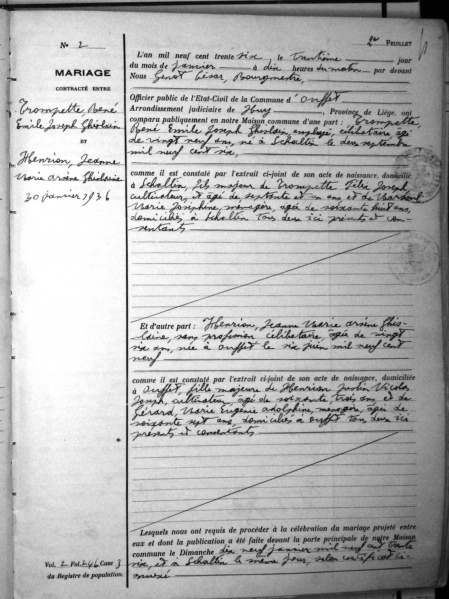 2e FEUILLET
N° 2
MARIAGE
CONTRACTÉ ENTRE
Trompette René
Emile Joseph Ghislain
ET
Henrion, Jeanne
Marie Arsène Ghislaine
30 janvier 1936
L'an mil neuf cent trente six le trentième jour
du mois de janvier à dix heures du matin par devant
Nous Genot César, Bourgmestre,
Officier public de l'Etat-Civil de la Commune d'Ouffet
Arrondissement judiciaire de Huy, Province de Liége, ont
comparu publiquement en notre Maison commune d'une part : Trompette,
René Emile Joseph Ghislain, employé, célibataire âgé
de vingt neuf ans, né à Schaltin le deux septembre
mil neuf cent six,
comme il est constaté par l'extrait ci-joint de son acte de naissance, domicilié
à Schaltin, fils majeur de Trompette Félix Joseph,
cultivateur, et âgé de septante et un ans et de
Marie Joséphine, ménagère, âgée de soixante huit ans,
domiciliés à Schaltin tous deux ici présents et con-
sentants
Et d'autre part : Henrion, Jeanne Marie Arsène Ghis-
laine, sans profession célibataire, âgée de vingt
six ans, née à Ouffet le six juin mil neuf cent
neuf
comme il est constaté par l'extrait ci-joint de son acte de naissance, domiciliée
à Ouffet, fille majeure de Henrion Justin Victor
Joseph, cultivateur, âgé de soixante trois ans, et de
Gérard, Marie Eugénie Adolphine, ménagère, âgée de
soixante sept ans, domiciliés à Ouffet tous deux ici
présents et consentants
Lesquels nous ont requis de procéder à la célébration du mariage projeté entre
eux et dont la publication a été faite devant la porte principale de notre Maison
commune le Dimanche dix neuf janvier mil neuf cent trente
six, et à Schaltin le même jour, selon certificat ci-
annexé
Vol. 2 Fol. 246 Case 3
du Registre de population.